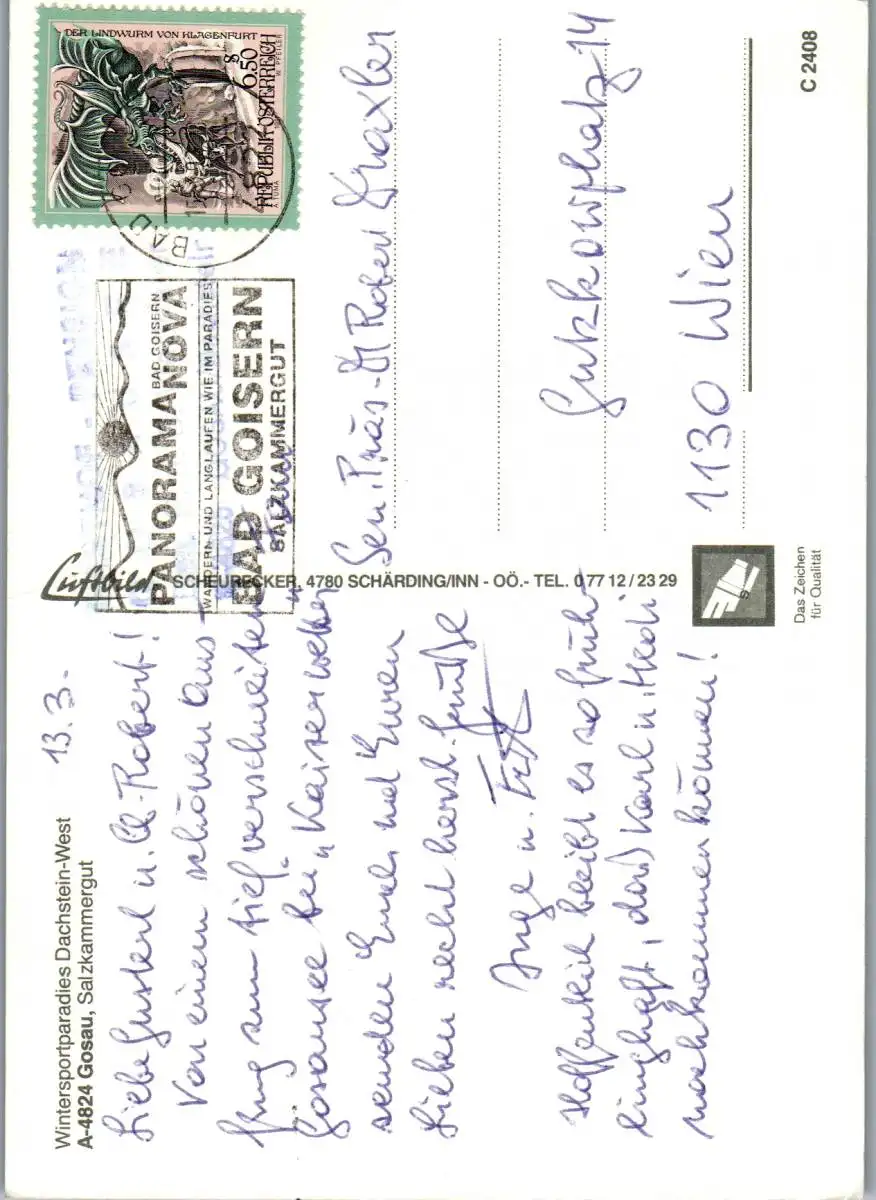 Wintersportparadies Dachstein-West
A-4824 Gosau, Salzkammergut
13. 3.
Liebe Gusterl u. Robert!
Von einem schönen Aus-
flug zum tief verschneiten
Gosausee bei „Kaiserwetter"
senden Euch und Euren
Lieben recht herzl. Grüße
Inge u. Fritz
Hoffentlich bleibt es so früh-
linghaft, daß Karl u. Hedi
nachkommen können!
Luftbild SCHEURECKER, 4780 SCHÄRDING/INN - OÖ.- TEL. 0 77 12 / 23 29
S
Das Zeichen
für Qualität
DER LINDWURM VON KLAGENFURT
S 6,50
REPUBLIK ÖSTERREICH
A. TUMA
W. PFEILER
BAD
PANORAMA BAD GOISERN NOVA
WANDERN UND LANGLAUFEN WIE IM PARADIES
BAD GOISERN
SALZKAMMERGUT
Sen. Präs. Dr Robert Draxler
Gutzkowplatz 14
1130 Wien
C 2408